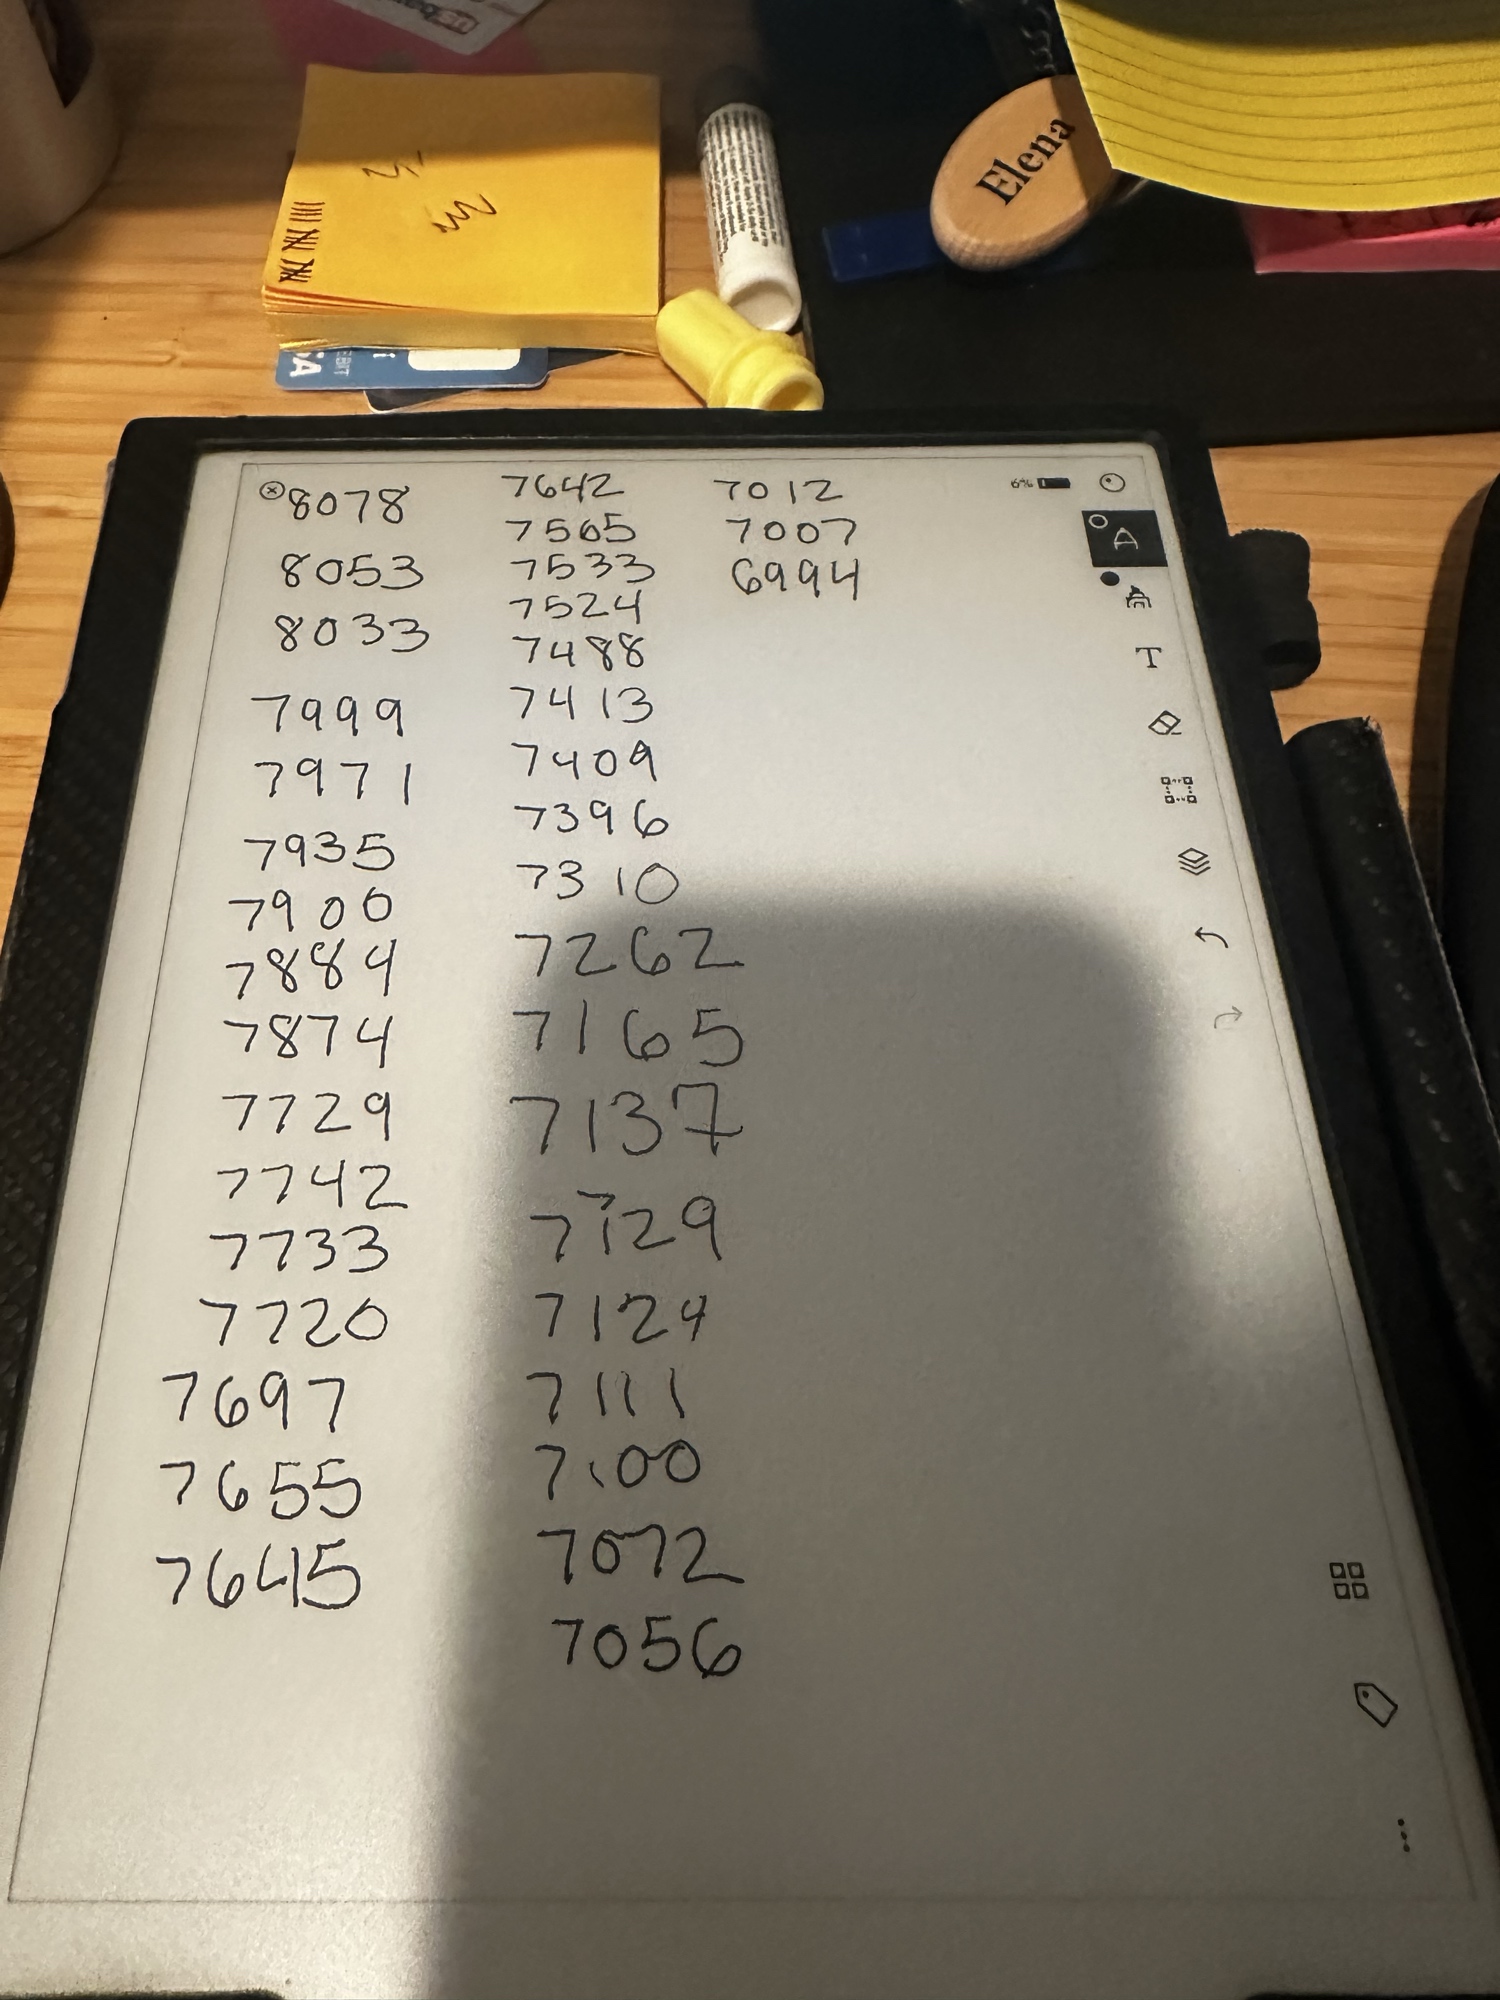 Elena
8078
8053
8033
7999
7971
7935
7900
7884
7874
7729
7742
7733
7720
7697
7655
7645
7642
7565
7533
7524
7488
7413
7409
7396
7310
7262
7165
7137
7129
7124
7111
7100
7072
7056
7012
7007
6994
6%
A
T